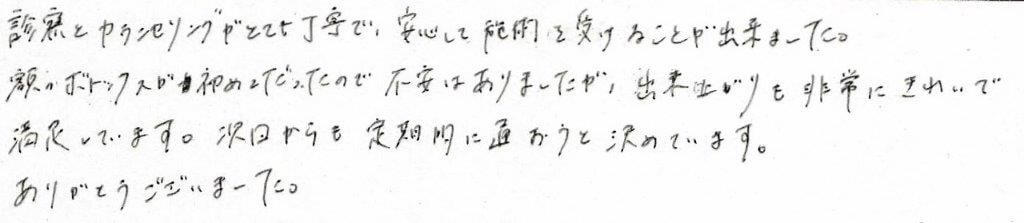 診察とカウンセリングがとても丁寧で、安心して施術を受けることが出来ました。
額のボトックスが初めてだったので不安はありましたが、出来上がりも非常にきれいで
満足しています。次回からも定期的に通おうと決めています。
ありがとうございました。